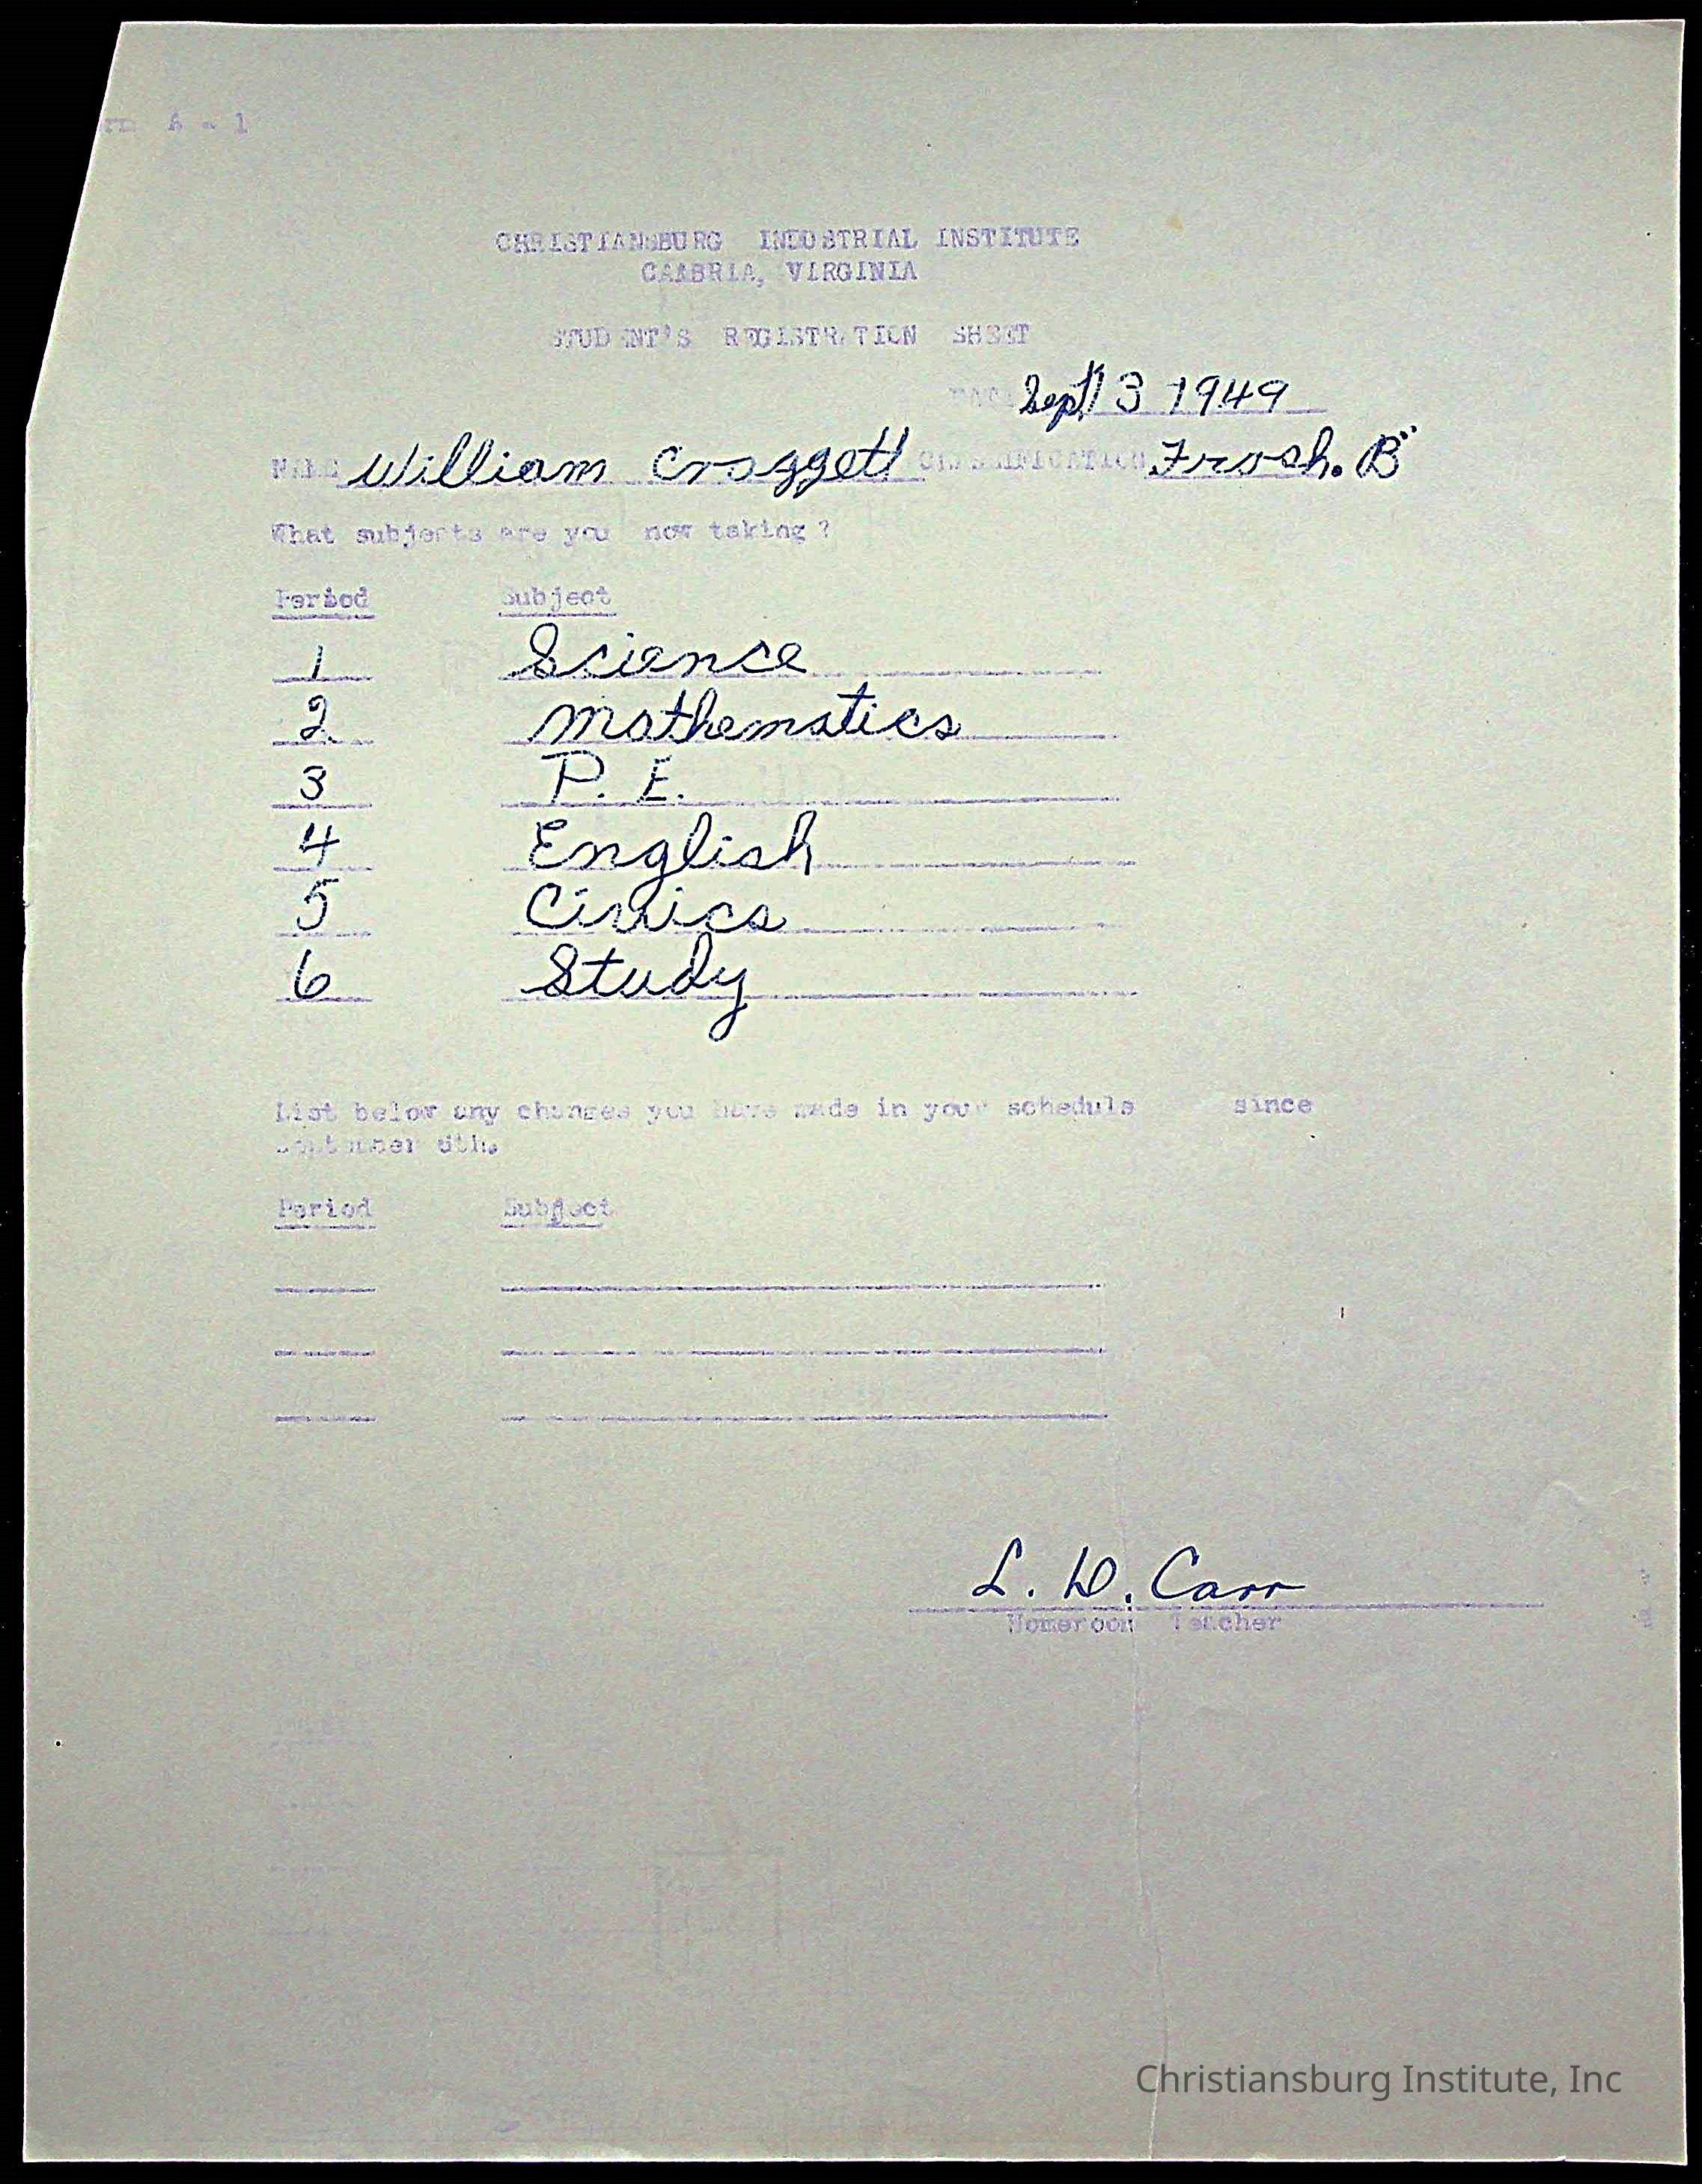 A - 1
CHRISTIANSBURG INDUSTRIAL INSTITUTE
CAMBRIA, VIRGINIA
STUDENT'S REGISTRATION SHEET
Sept 3 1949
NAME William Craggett CLASSIFICATION Frosh. B"
What subjects are you now taking?
Period Subject
1 Science
2 Mathematics
3 P. E.
4 English
5 Civics
6 Study
List below any changes you have made in your schedule since
September 6th.
Period Subject
L. D. Carr
Homeroom Teacher
Christiansburg Institute, Inc